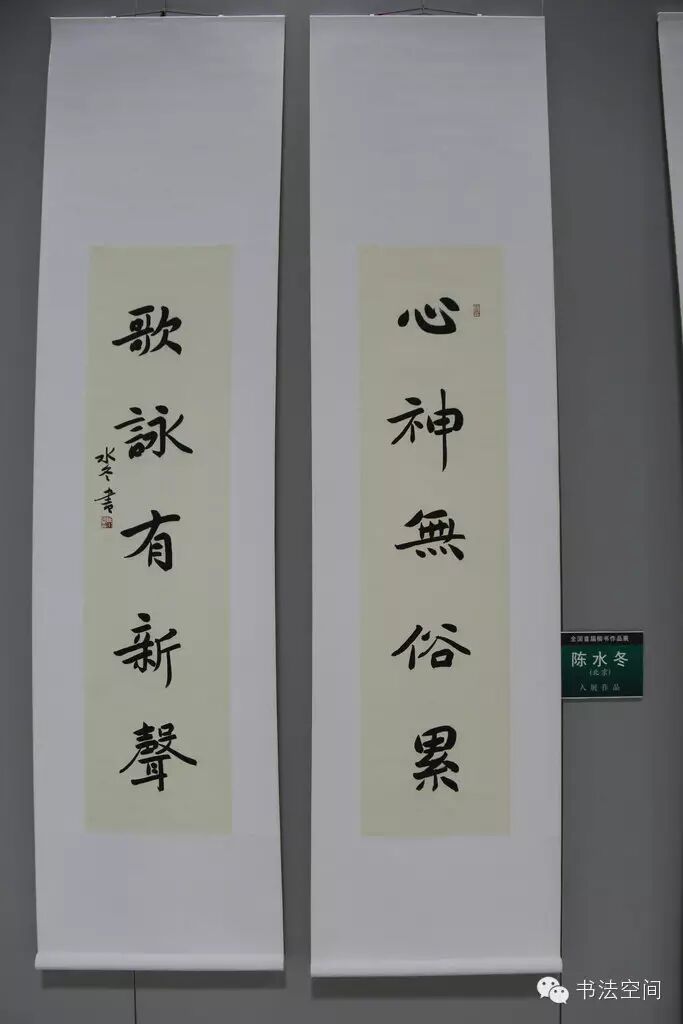 心神無俗累
歌詠有新聲
水冬書
全国首届楷书作品展
陈水冬
(北京)
入展作品
书法空间